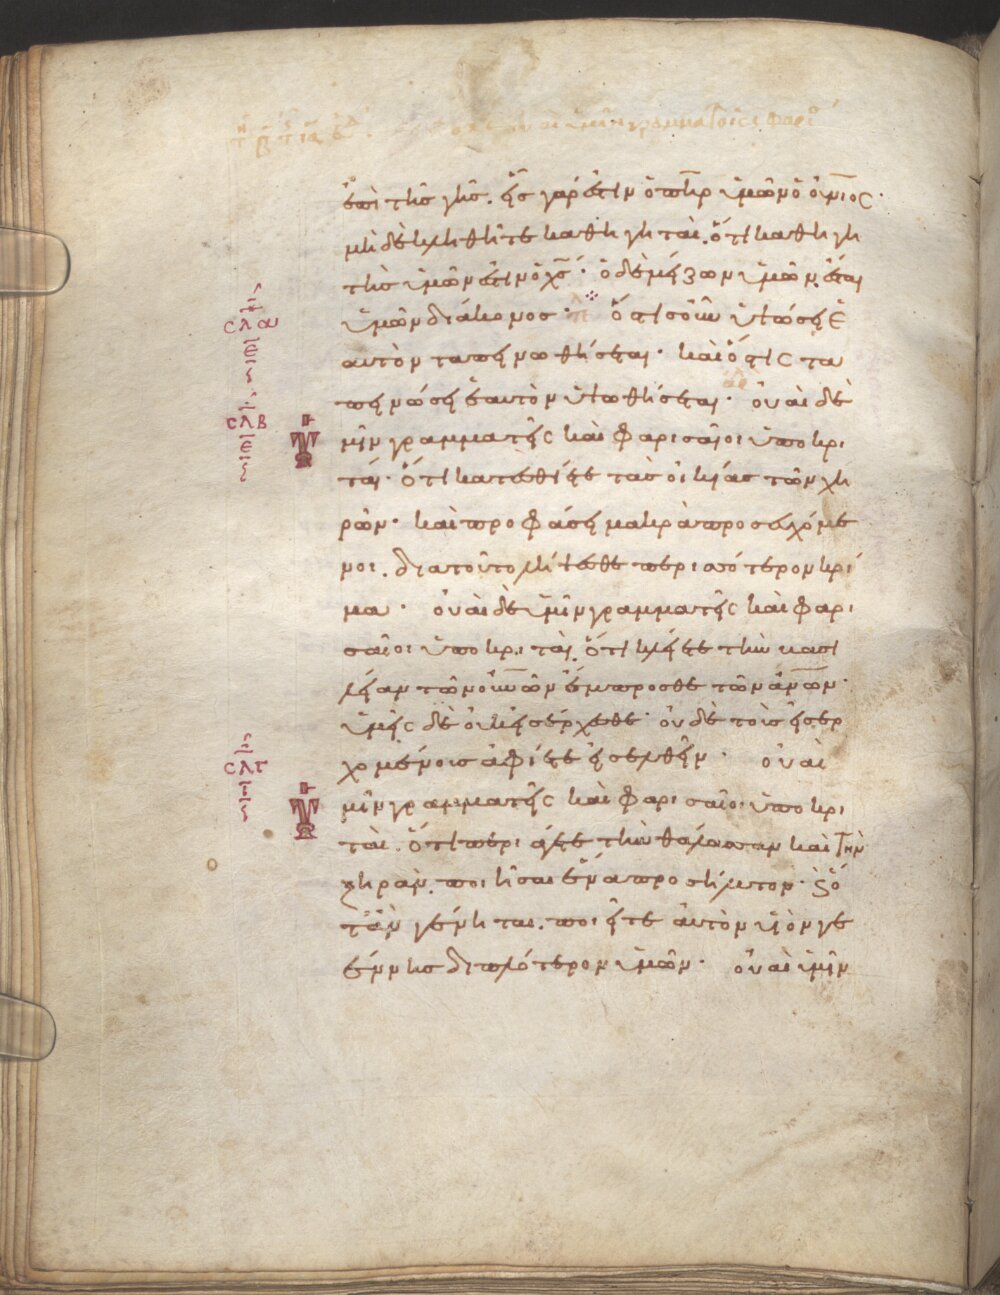 ἐπὶ τῆς γῆς. εἷς γάρ ἐστιν ὁ πη̅ρ ὑμῶν ὁ οὐ̅νιος·
μὴ δὲ κληθῆτε καθηγηταί. ὅτι καθηγη
τὴς ὑμῶν ἐστιν ὁ χ̅ς· ὁ δὲ μείζων ὑμῶν ἔσται
ὑμῶν διάκονος· ὅστις οὖν ὑψώσει ἑ
αυτὸν ταπεινωθήσεται· καὶ ὅστις τα
πεινώσει ἑαυτὸν ὑψωθήσεται· οὐαὶ δὲ
σλα
ε
σλβ
ε
μῖν γραμματεῖς καὶ φαρισαῖοι ὑποκρι
ταί· ὅτι κατεσθίετε τὰς οἰκίας τῶν χη
ρῶν· καὶ προφάσει μακρὰ προσευχόμε
νοι. διατοῦτο λήψεσθε περισσότερον κρί
μα· οὐαὶ δὲ ὑμῖν γραμματεῖς καὶ φαρι
σαῖοι ὑποκριταί. ὅτι κλείετε τὴν βασι
λείαν τῶν οὐ̅νῶν ἔμπροσθε τῶν ἀν̅ων·
ὑμεῖς δὲ οὐκ εἰσέρχεσθε· οὐδὲ τοὺς εἰσερ
χομένους ἀφίετε εἰσελθεῖν· οὐαὶ
σλγ
μῖν γραμματεῖς καὶ φαρισαῖοι ὑποκρι
ταί. ὅτι περιάγετε τὴν θάλασσαν καὶ τὴν
ξηρὰν. ποιῆσαι ἕνα προσήλυτον· ϗ ὅ
τἂν γένηται. ποιεῖτε αὐτὸν υἱὸν γε
έννης διπλότερον ὑμῶν· οὐαὶ ὑμῖν